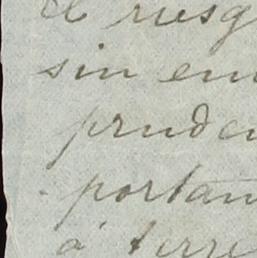 el riesg
sin em
pruden
portan
á terre